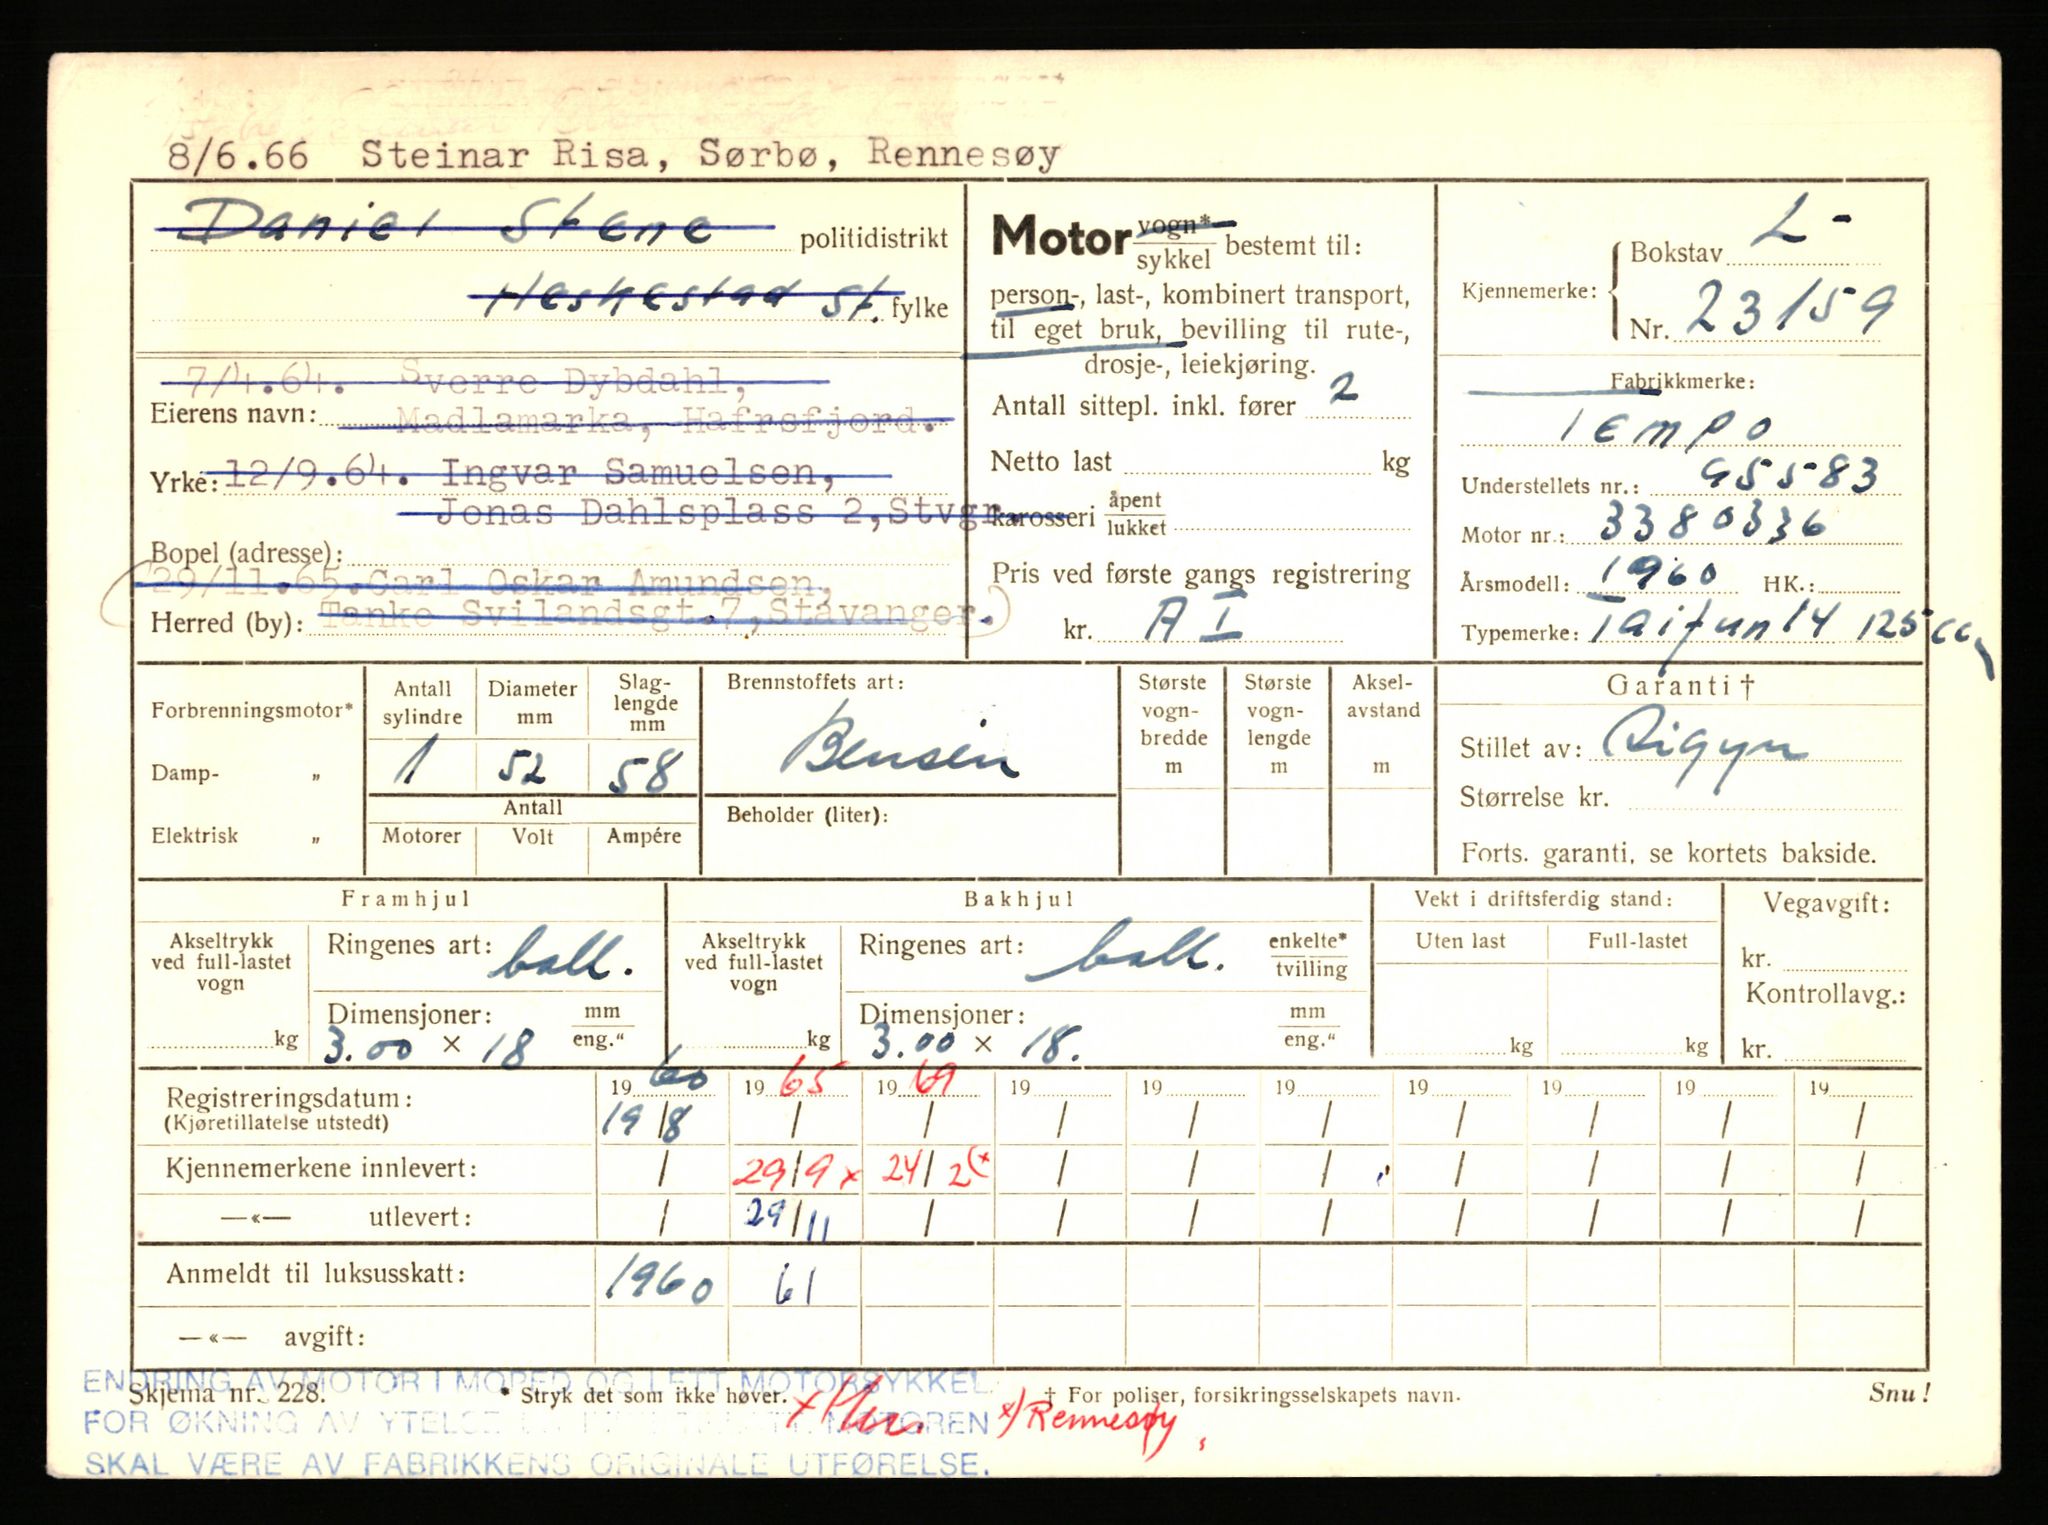 8/6.66 Steinar Risa, Sørbø, Rennesøy
Daniel Stene politidistrikt
Heskestad St. fylke
7/4.64. Sverre Dybdahl,
Eierens navn: Madlamarka, Hafrsfjord.
Yrke: 12/9.64. Ingvar Samuelsen,
Jonas Dahlsplass 2, Stvgr.
Bopel (adresse):
29/11.65. Carl Oskar Amundsen,
Herred (by): Tanke Svilandsgt. 7, Stavanger.
Motor vogn* / sykkel bestemt til:
person-, last-, kombinert transport,
til eget bruk, bevilling til rute-,
drosje-, leiekjøring.
Antall sittepl. inkl. fører 2
Netto last kg
karosseri åpent / lukket
Pris ved første gangs registrering
kr. A I
Kjennemerke: Bokstav L-
Nr. 23159
Fabrikkmerke:
Tempo
Understellets nr.: 95583
Motor nr.: 3380336
Årsmodell: 1960 HK.:
Typemerke: Taifun 14 125 cc
Forbrenningsmotor*
Damp- „
Elektrisk „
Antall sylindre 1
Diameter mm 52
Slag-lengde mm 58
Antall
Motorer Volt Ampére
Brennstoffets art:
Bensin
Beholder (liter):
Største vogn-bredde m
Største vogn-lengde m
Aksel-avstand m
Garanti †
Stillet av: Sigyn
Størrelse kr.
Forts. garanti, se kortets bakside.
Framhjul
Akseltrykk ved full-lastet vogn kg
Ringenes art: ball.
Dimensjoner: mm / eng."
3.00 × 18
Bakhjul
Akseltrykk ved full-lastet vogn kg
Ringenes art: ball. enkelte* / tvilling
Dimensjoner: mm / eng."
3.00 × 18.
Vekt i driftsferdig stand:
Uten last Full-lastet
kg kg
Vegavgift:
kr.
Kontrollavg.:
kr.
19 60 19 65 19 69 19 19 19 19 19 19 19
Registreringsdatum: 19/8 / / / / / / / / /
(Kjøretillatelse utstedt)
Kjennemerkene innlevert: / 29/9 x 24/2 (x / / / / / / /
—«— utlevert: / 29/11 / / / / / / / /
Anmeldt til luksusskatt: 1960 61
—«— avgift:
ENDRING AV MOTOR I MOPED OG LETT MOTORSYKKEL
Skjema nr. 228. * Stryk det som ikke høver. † For poliser, forsikringsselskapets navn. Snu!
FOR ØKNING AV YTELSE MOTOREN
x) Rennesøy
SKAL VÆRE AV FABRIKKENS ORIGINALE UTFØRELSE.